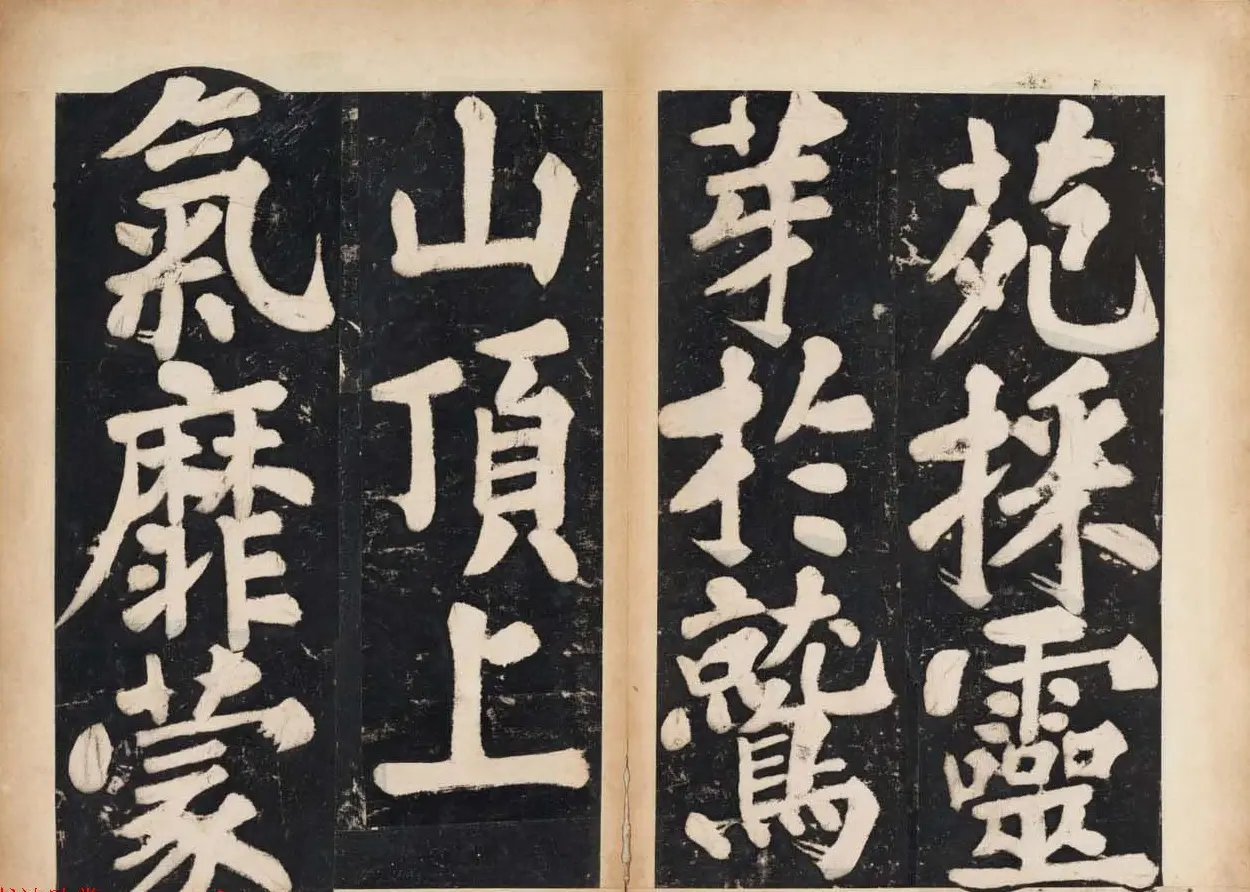 苑採靈
芽於鷲
山頂上
氣靡蒙